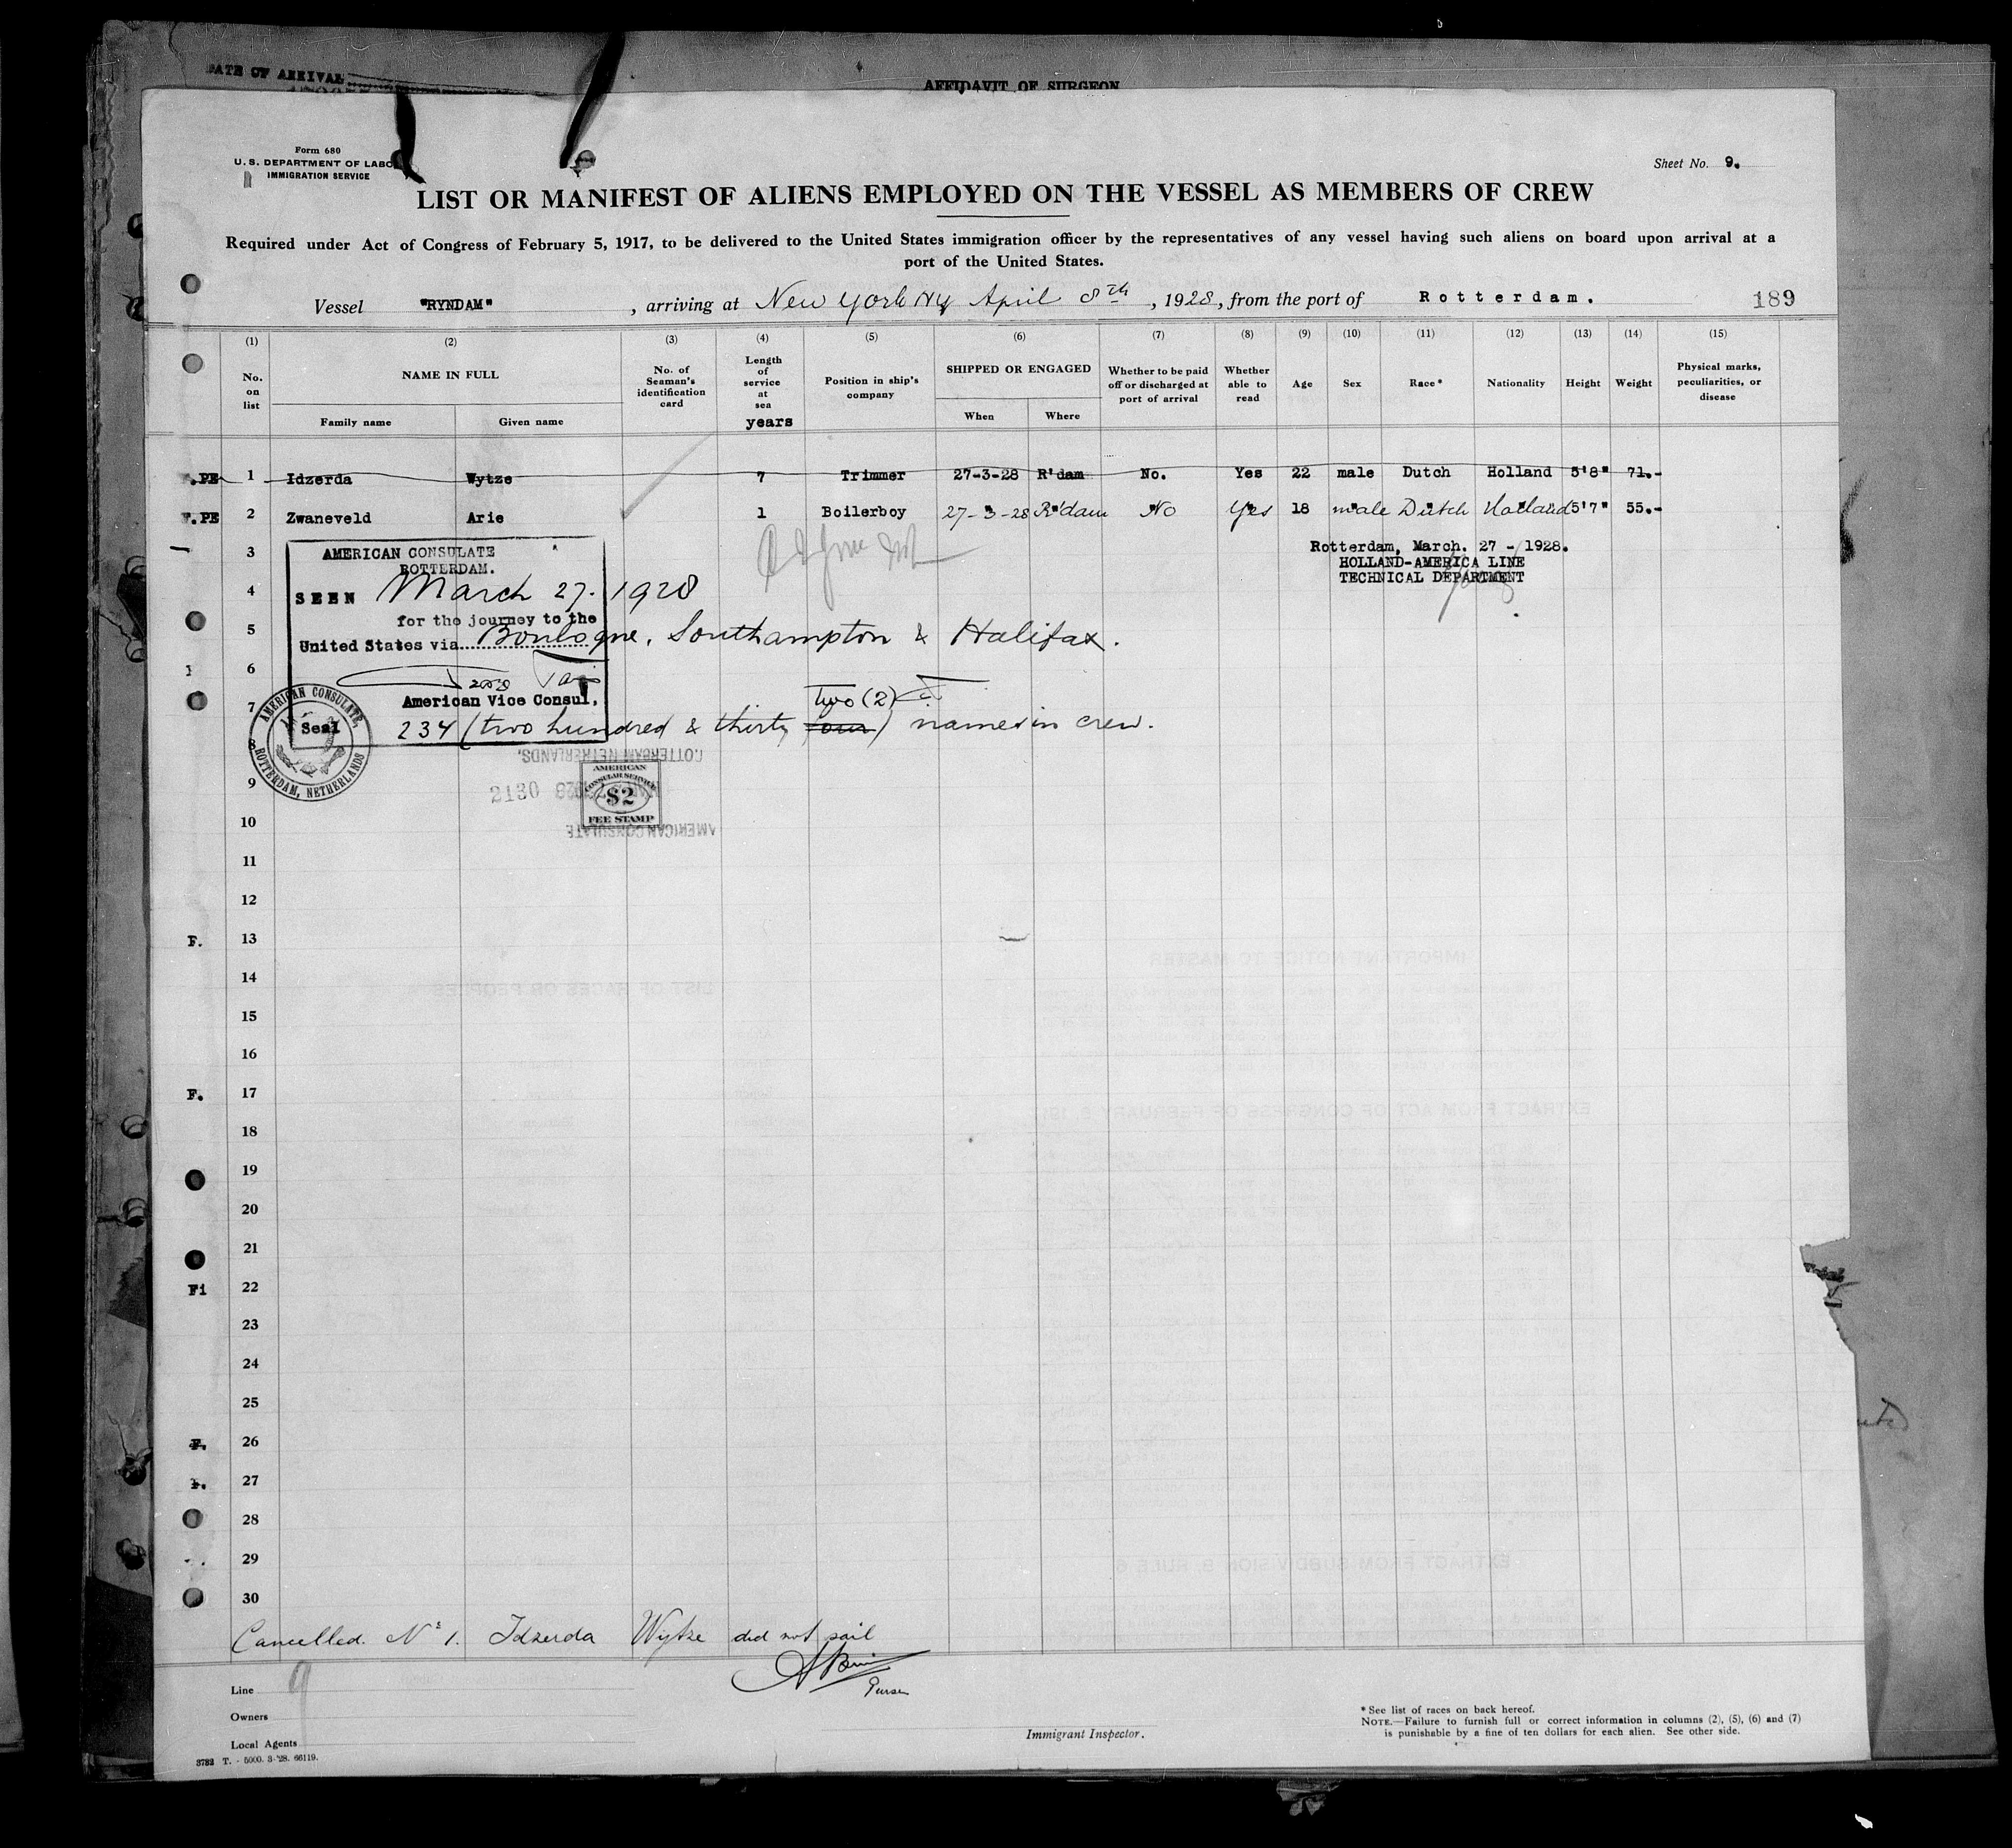 DATE OF ARRIVAL
AFFIDAVIT OF SURGEON
Form 680
U. S. DEPARTMENT OF LABO
IMMIGRATION SERVICE
Sheet No. 9.
LIST OR MANIFEST OF ALIENS EMPLOYED ON THE VESSEL AS MEMBERS OF CREW
Required under Act of Congress of February 5, 1917, to be delivered to the United States immigration officer by the representatives of any vessel having such aliens on board upon arrival at a
port of the United States.
Vessel "RYNDAM" , arriving at New York NY April 8th , 1928, from the port of Rotterdam.
189
(1) (2) (3) (4) (5) (6) (7) (8) (9) (10) (11) (12) (13) (14) (15)
No. on list
NAME IN FULL
Family name Given name
No. of Seaman's identification card
Length of service at sea years
Position in ship's company
SHIPPED OR ENGAGED
When Where
Whether to be paid off or discharged at port of arrival
Whether able to read
Age Sex Race* Nationality Height Weight
Physical marks, peculiarities, or disease
.PE 1 Idzerda Wytze 7 Trimmer 27-3-28 R'dam No. Yes 22 male Dutch Holland 5'8" 71.-
F.PE 2 Zwaneveld Arie 1 Boilerboy 27-3-28 R'dam No Yes 18 male Dutch Holland 5'7" 55.-
3
AMERICAN CONSULATE
ROTTERDAM.
Rotterdam, March. 27 - 1928.
HOLLAND-AMERICA LINE
TECHNICAL DEPARTMENT
4
SEEN March 27. 1928
for the journey to the
5
United States via Boulogne, Southampton & Halifax.
6
American Vice Consul.
7
two (2)
234 (two hundred & thirty four) names in crew.
8
Seal
AMERICAN CONSULATE,
ROTTERDAM, NETHERLANDS
ROTTERDAM NETHERLANDS.
2130
AMERICAN CONSULATE
AMERICAN
CONSULAR SERVICE
$2
FEE STAMP
9
10
11
12
F. 13
14
15
16
F. 17
18
19
20
21
Fi 22
23
24
25
F. 26
27
28
29
30
Cancelled. No 1. Idzerda Wytze did not sail
Purser
9
Line
Owners
Local Agents
Immigrant Inspector.
* See list of races on back hereof.
NOTE.—Failure to furnish full or correct information in columns (2), (5), (6) and (7)
is punishable by a fine of ten dollars for each alien. See other side.
3782 T. - 5000. 3-'28. 66119.
LIST OF RACES OR PEOPLES
IMPORTANT NOTICE TO MASTER
EXTRACT FROM ACT OF CONGRESS OF FEBRUARY 5, 1917
EXTRACT FROM SUBDIVISION 5, RULE 6